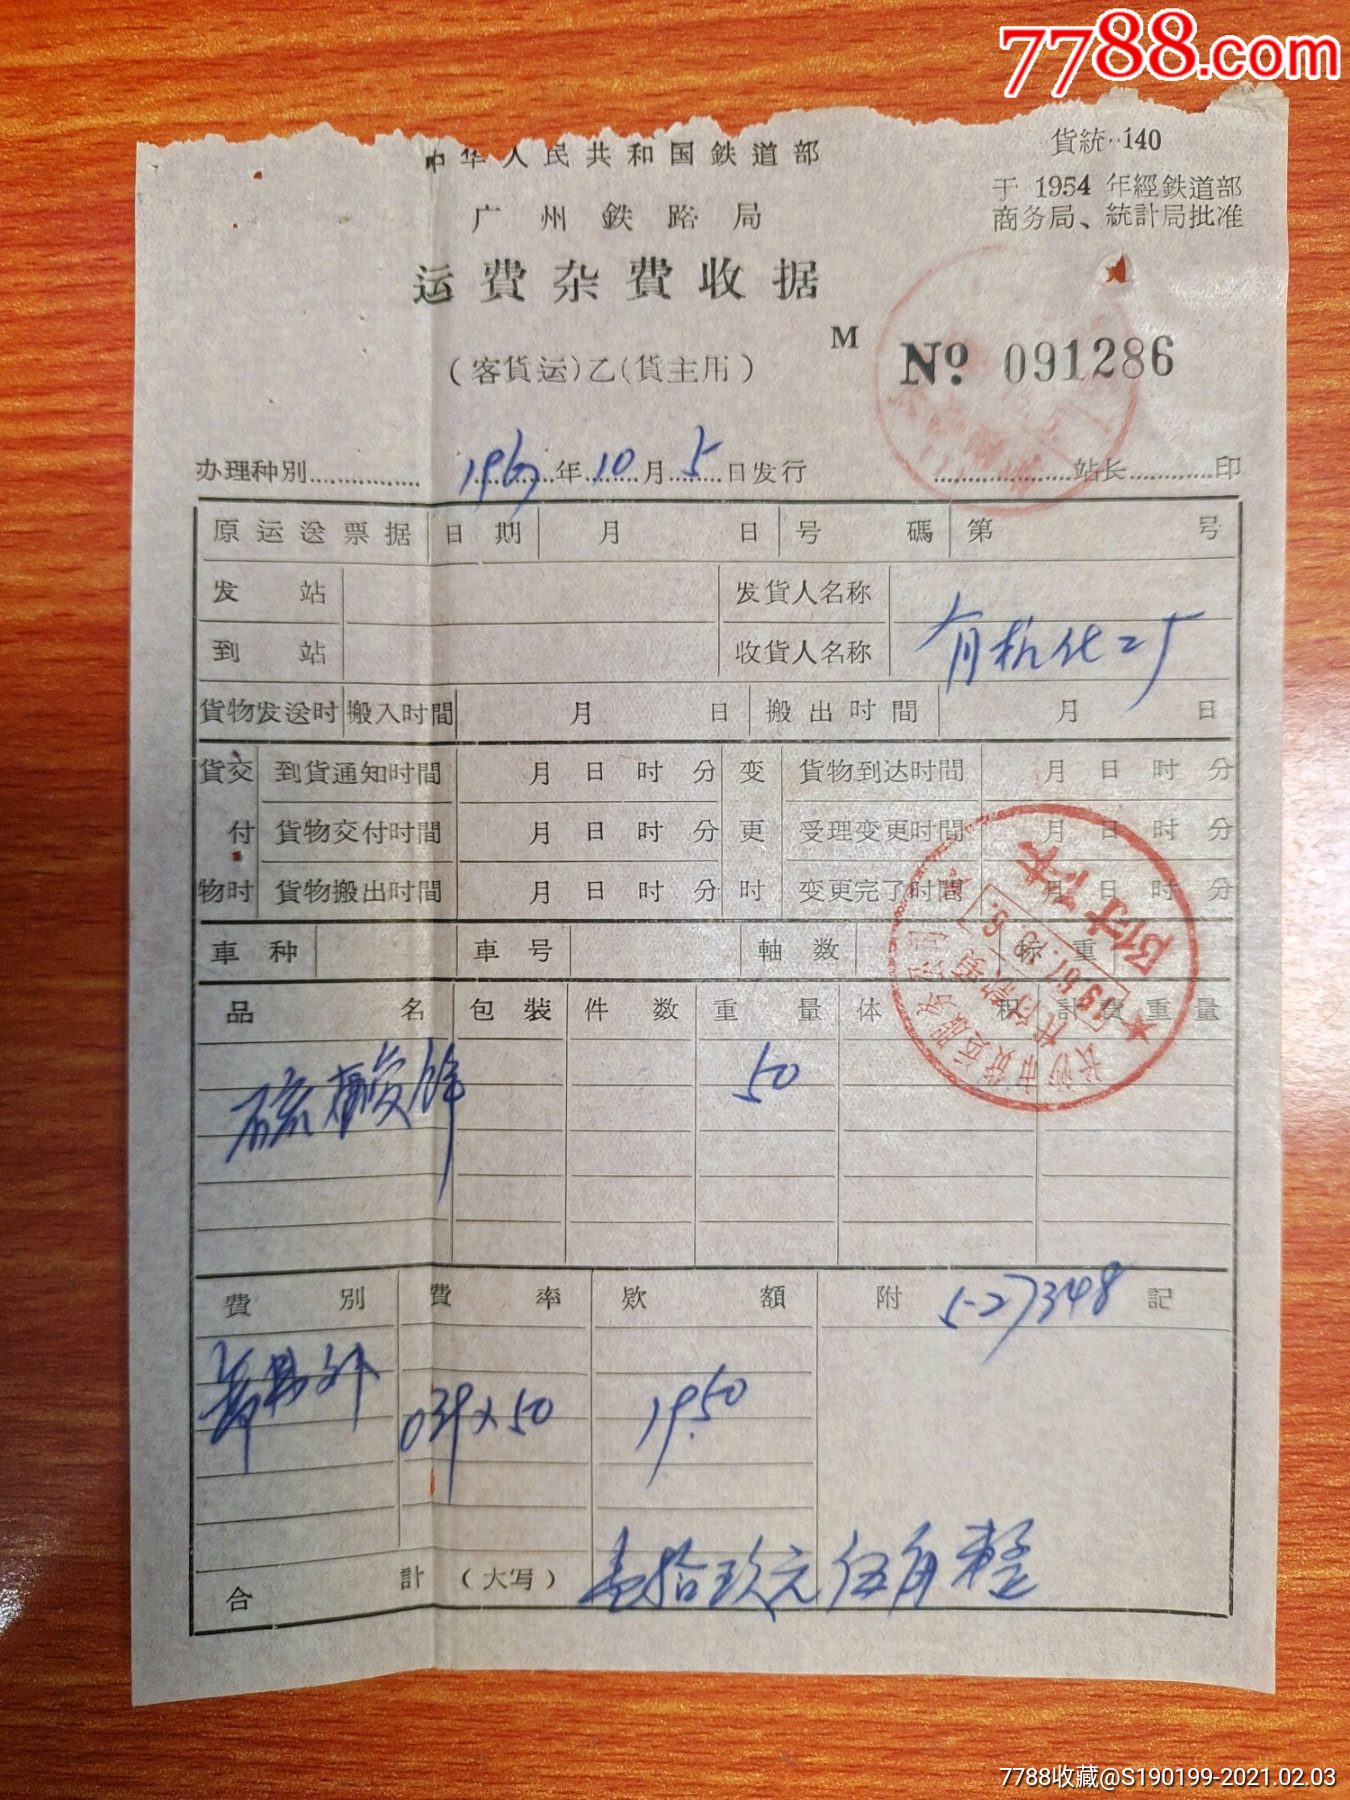 7788.com
貨統··140
中华人民共和国鉄道部
于 1954 年經鉄道部
商务局、統計局批准
广州鉄路局
运費杂費收据
M
№ 091286
(客貨运)乙(貨主用)
办理种別 1967年10月5日发行 站长 印
原运送票据 日期 月 日 号碼 第 号
发站 发貨人名称
到站 收貨人名称 有机化工厂
貨物发送时 搬入时間 月 日 搬出时間 月 日
貨交 到貨通知时間 月 日 时 分 变 貨物到达时間 月 日 时 分
付 貨物交付时間 月 日 时 分 更 受理变更时間 月 日 时 分
物时 貨物搬出时間 月 日 时 分 时 变更完了时間 月 日 时 分
車种 車号 軸数 标重
品名 包裝 件数 重量 体积 計費重量
硫酸锌 50
費別 費率 欵額 附記 5-27348
039×50 19.50
合計(大写) 壹拾玖元伍角整
付讫
7788收藏@S190199-2021.02.03